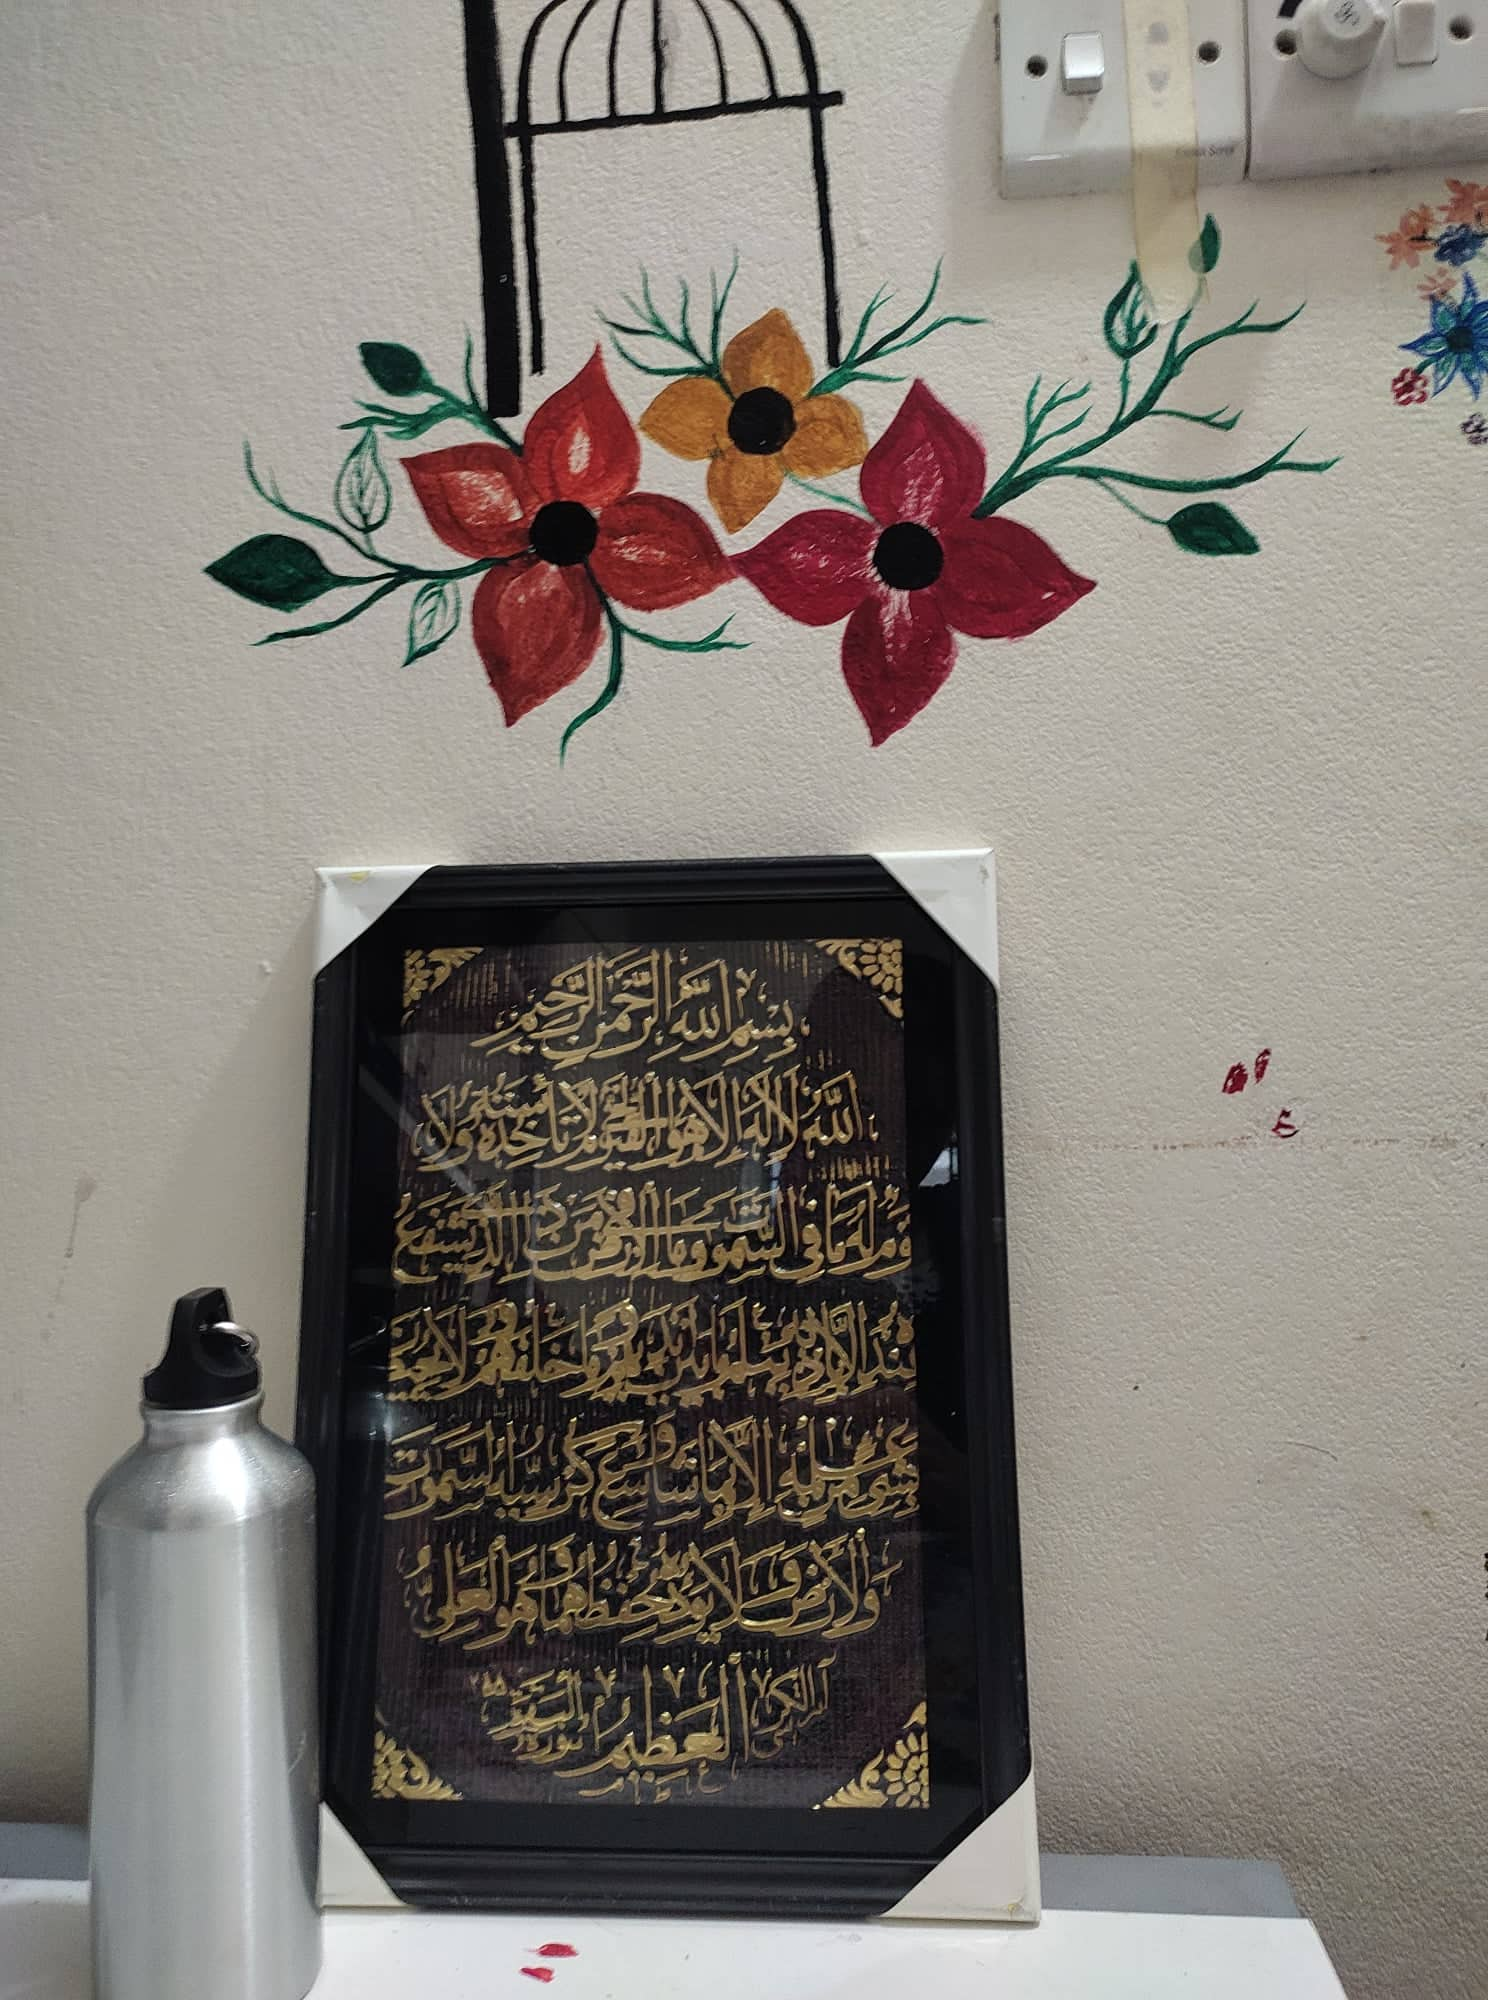 بِسْمِ اللَّهِ الرَّحْمَنِ الرَّحِيمِ
اللَّهُ لَا إِلَهَ إِلَّا هُوَ الْحَيُّ الْقَيُّومُ لَا تَأْخُذُهُ سِنَةٌ وَلَا
نَوْمٌ لَهُ مَا فِي السَّمَوَتِ وَمَا فِي الْأَرْضِ مَنْ ذَا الَّذِي يَشْفَعُ
عِنْدَهُ إِلَّا بِإِذْنِهِ يَعْلَمُ مَا بَيْنَ أَيْدِيهِمْ وَمَا خَلْفَهُمْ وَلَا يُحِيطُونَ
بِشَيْءٍ مِنْ عِلْمِهِ إِلَّا بِمَا شَاءَ وَسِعَ كُرْسِيُّهُ السَّمَوَتِ
وَالْأَرْضَ وَلَا يَئُودُهُ حِفْظُهُمَا وَهُوَ الْعَلِيُّ
الْعَظِيمُ
آية الكرسي
سورة البقرة ٢٥٥